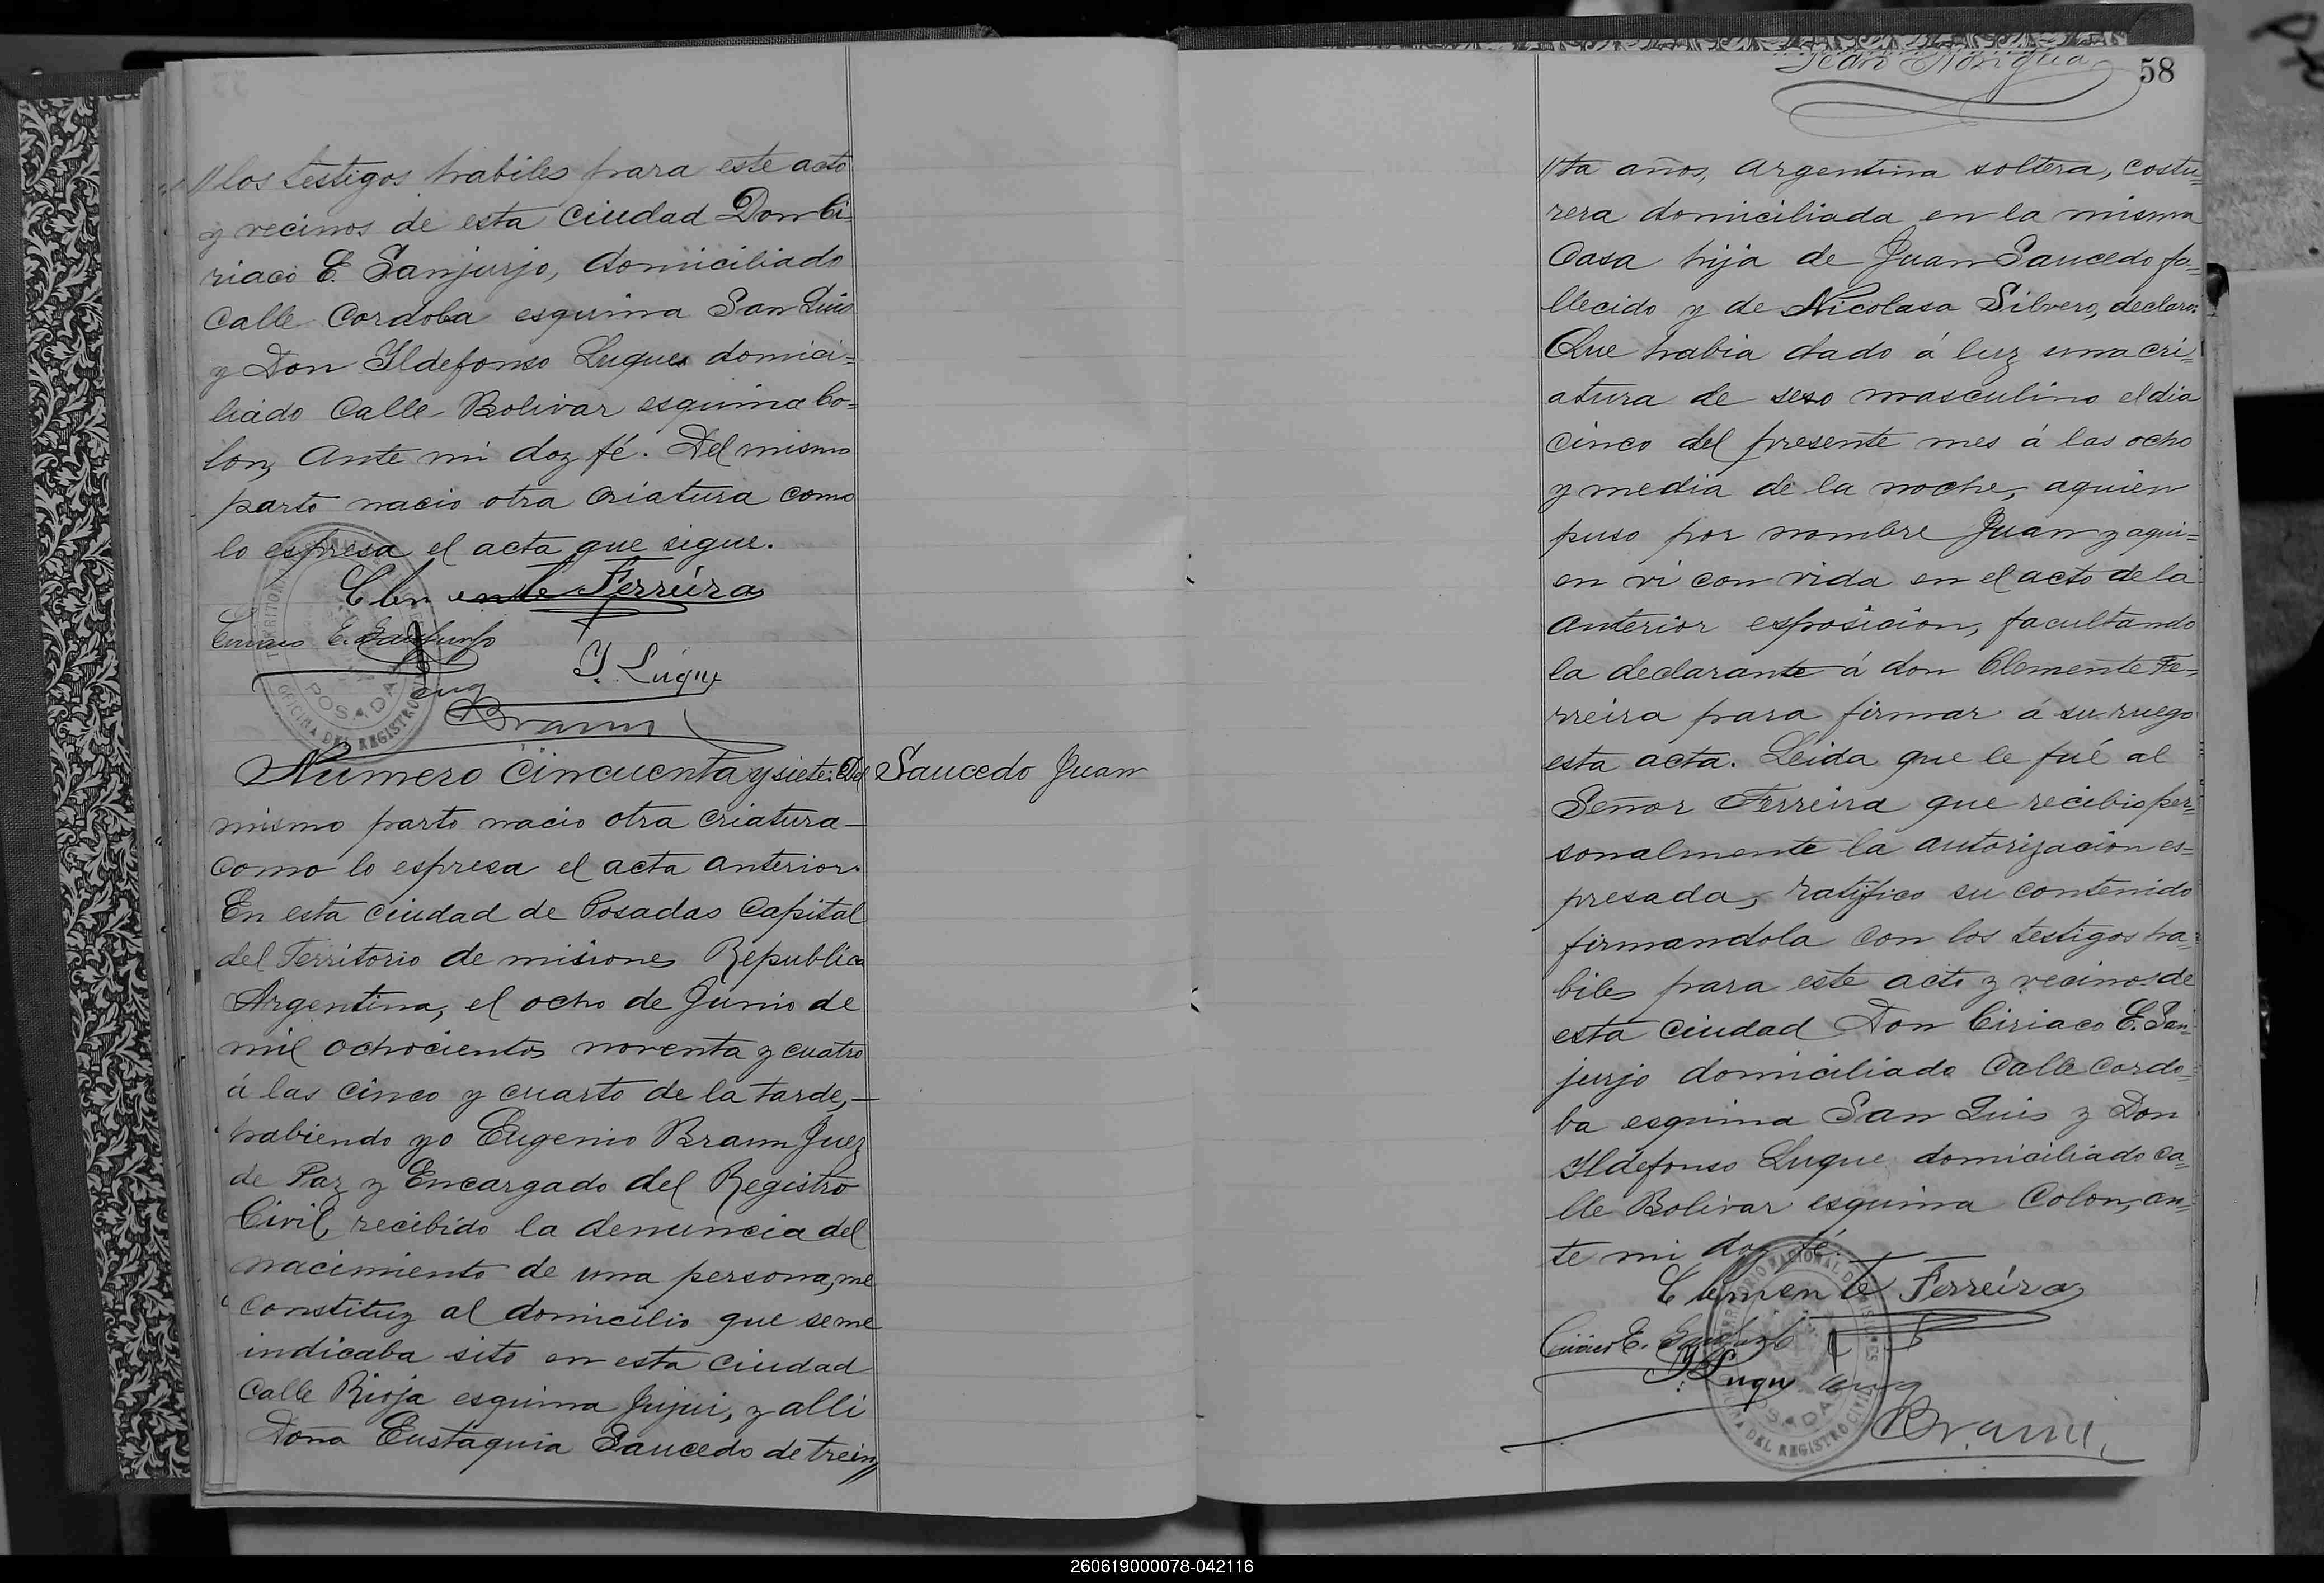 //los testigos habiles para este acto
y vecinos de esta Ciudad Don Ci-
riaco E. Sanjurjo, domiciliado
Calle Cordoba esquina San Luis
y Don Yldefonso Luque domici=
liado Calle Bolivar esquina Co=
lon, ante mi doy fé. Del mismo
parto nacio otra criatura como
lo espresa el acta que sigue.
Clemente Ferreira
Ciriaco E. Sanjurjo
Y. Luque
Eug
Braun
TERRITORIO
POSADAS
OFICINA DEL REGISTRO
Numero Cincuenta y siete: Del
Saucedo Juan
mismo parto nacio otra criatura—
como lo espresa el acta anterior.
En esta ciudad de Posadas Capital
del Territorio de misiones Republica
Argentina, el ocho de Junio de
mil ochocientos noventa y cuatro
á las cinco y cuarto de la tarde,—
habiendo yo Eugenio Braun Juez
de Paz y Encargado del Registro
Civil, recibido la denuncia del
nacimiento de una persona, me
constituy al domicilio que se me
indicaba sito en esta Ciudad
Calle Rioja esquina Jujui, y alli
Doña Eustaquia Saucedo de trein//
58
//ta años, argentina soltera, costu=
rera domiciliada en la misma
Casa hija de Juan Saucedo fa=
llecido y de Nicolasa Silvero, declaro:
Que habia dado á luz una cri-
atura de sexo masculino el dia
cinco del presente mes á las ocho
y media de la noche, aquien
puso por nombre Juan y aqui=
en vi con vida en el acto de la
anterior esposicion, facultando
la declarante á don Clemente Fe=
rreira para firmar á su ruego
esta acta. Leida que le fué al
Señor Ferreira que recibio per=
sonalmente la autorizacion es=
presada, ratifico su contenido
firmandola con los testigos ha=
biles para este acto y vecinos de
esta Ciudad Don Ciriaco E. San-
jurjo domiciliado Calle Cordo=
ba esquina San Luis y Don
Yldefonso Luque domiciliado Ca=
lle Bolivar esquina Colon, an=
te mi doy fé.
Clemente Ferreira
Ciriaco E. Sanjurjo
Y. Luque
Eug
Braun
TERRITORIO NACIONAL DE MISIONES
POSADAS
OFICINA DEL REGISTRO CIVIL
260619000078-042116